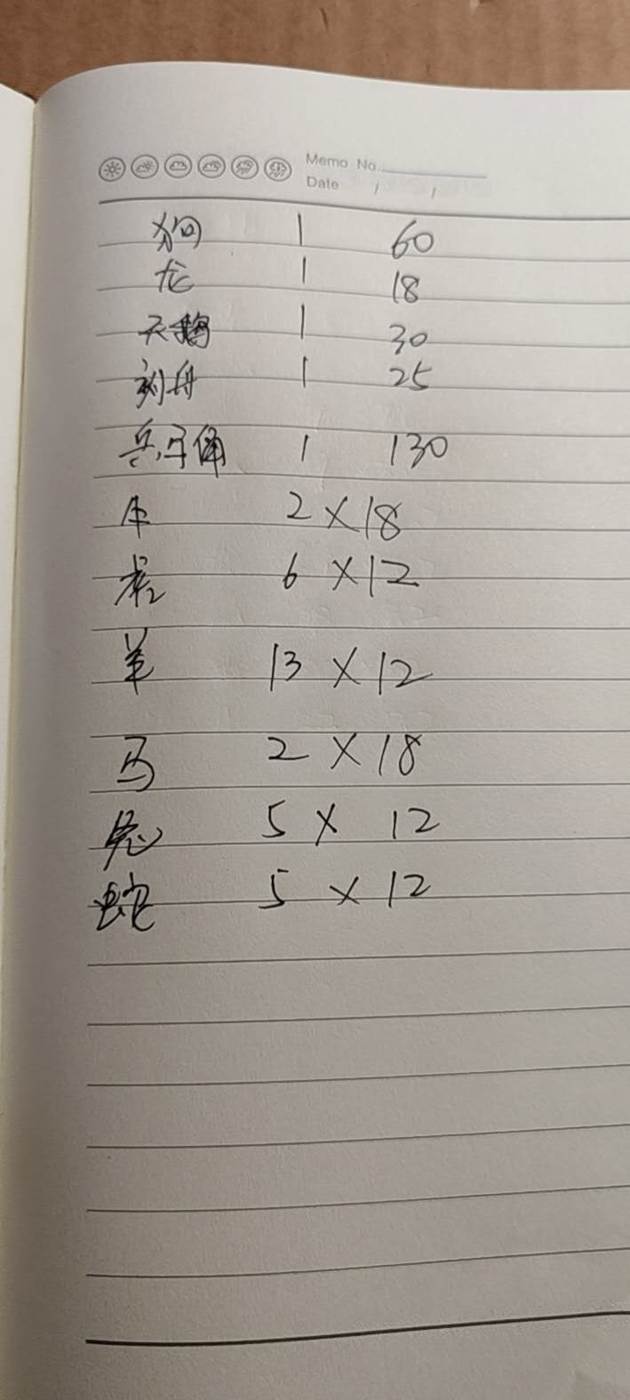 Memo No.
Date / /
狗 1 60
龙 1 18
天鹅 1 30
刻舟 1 25
兵马俑 1 130
牛 2×18
6×12
羊 13×12
马 2×18
5×12
蛇 5×12